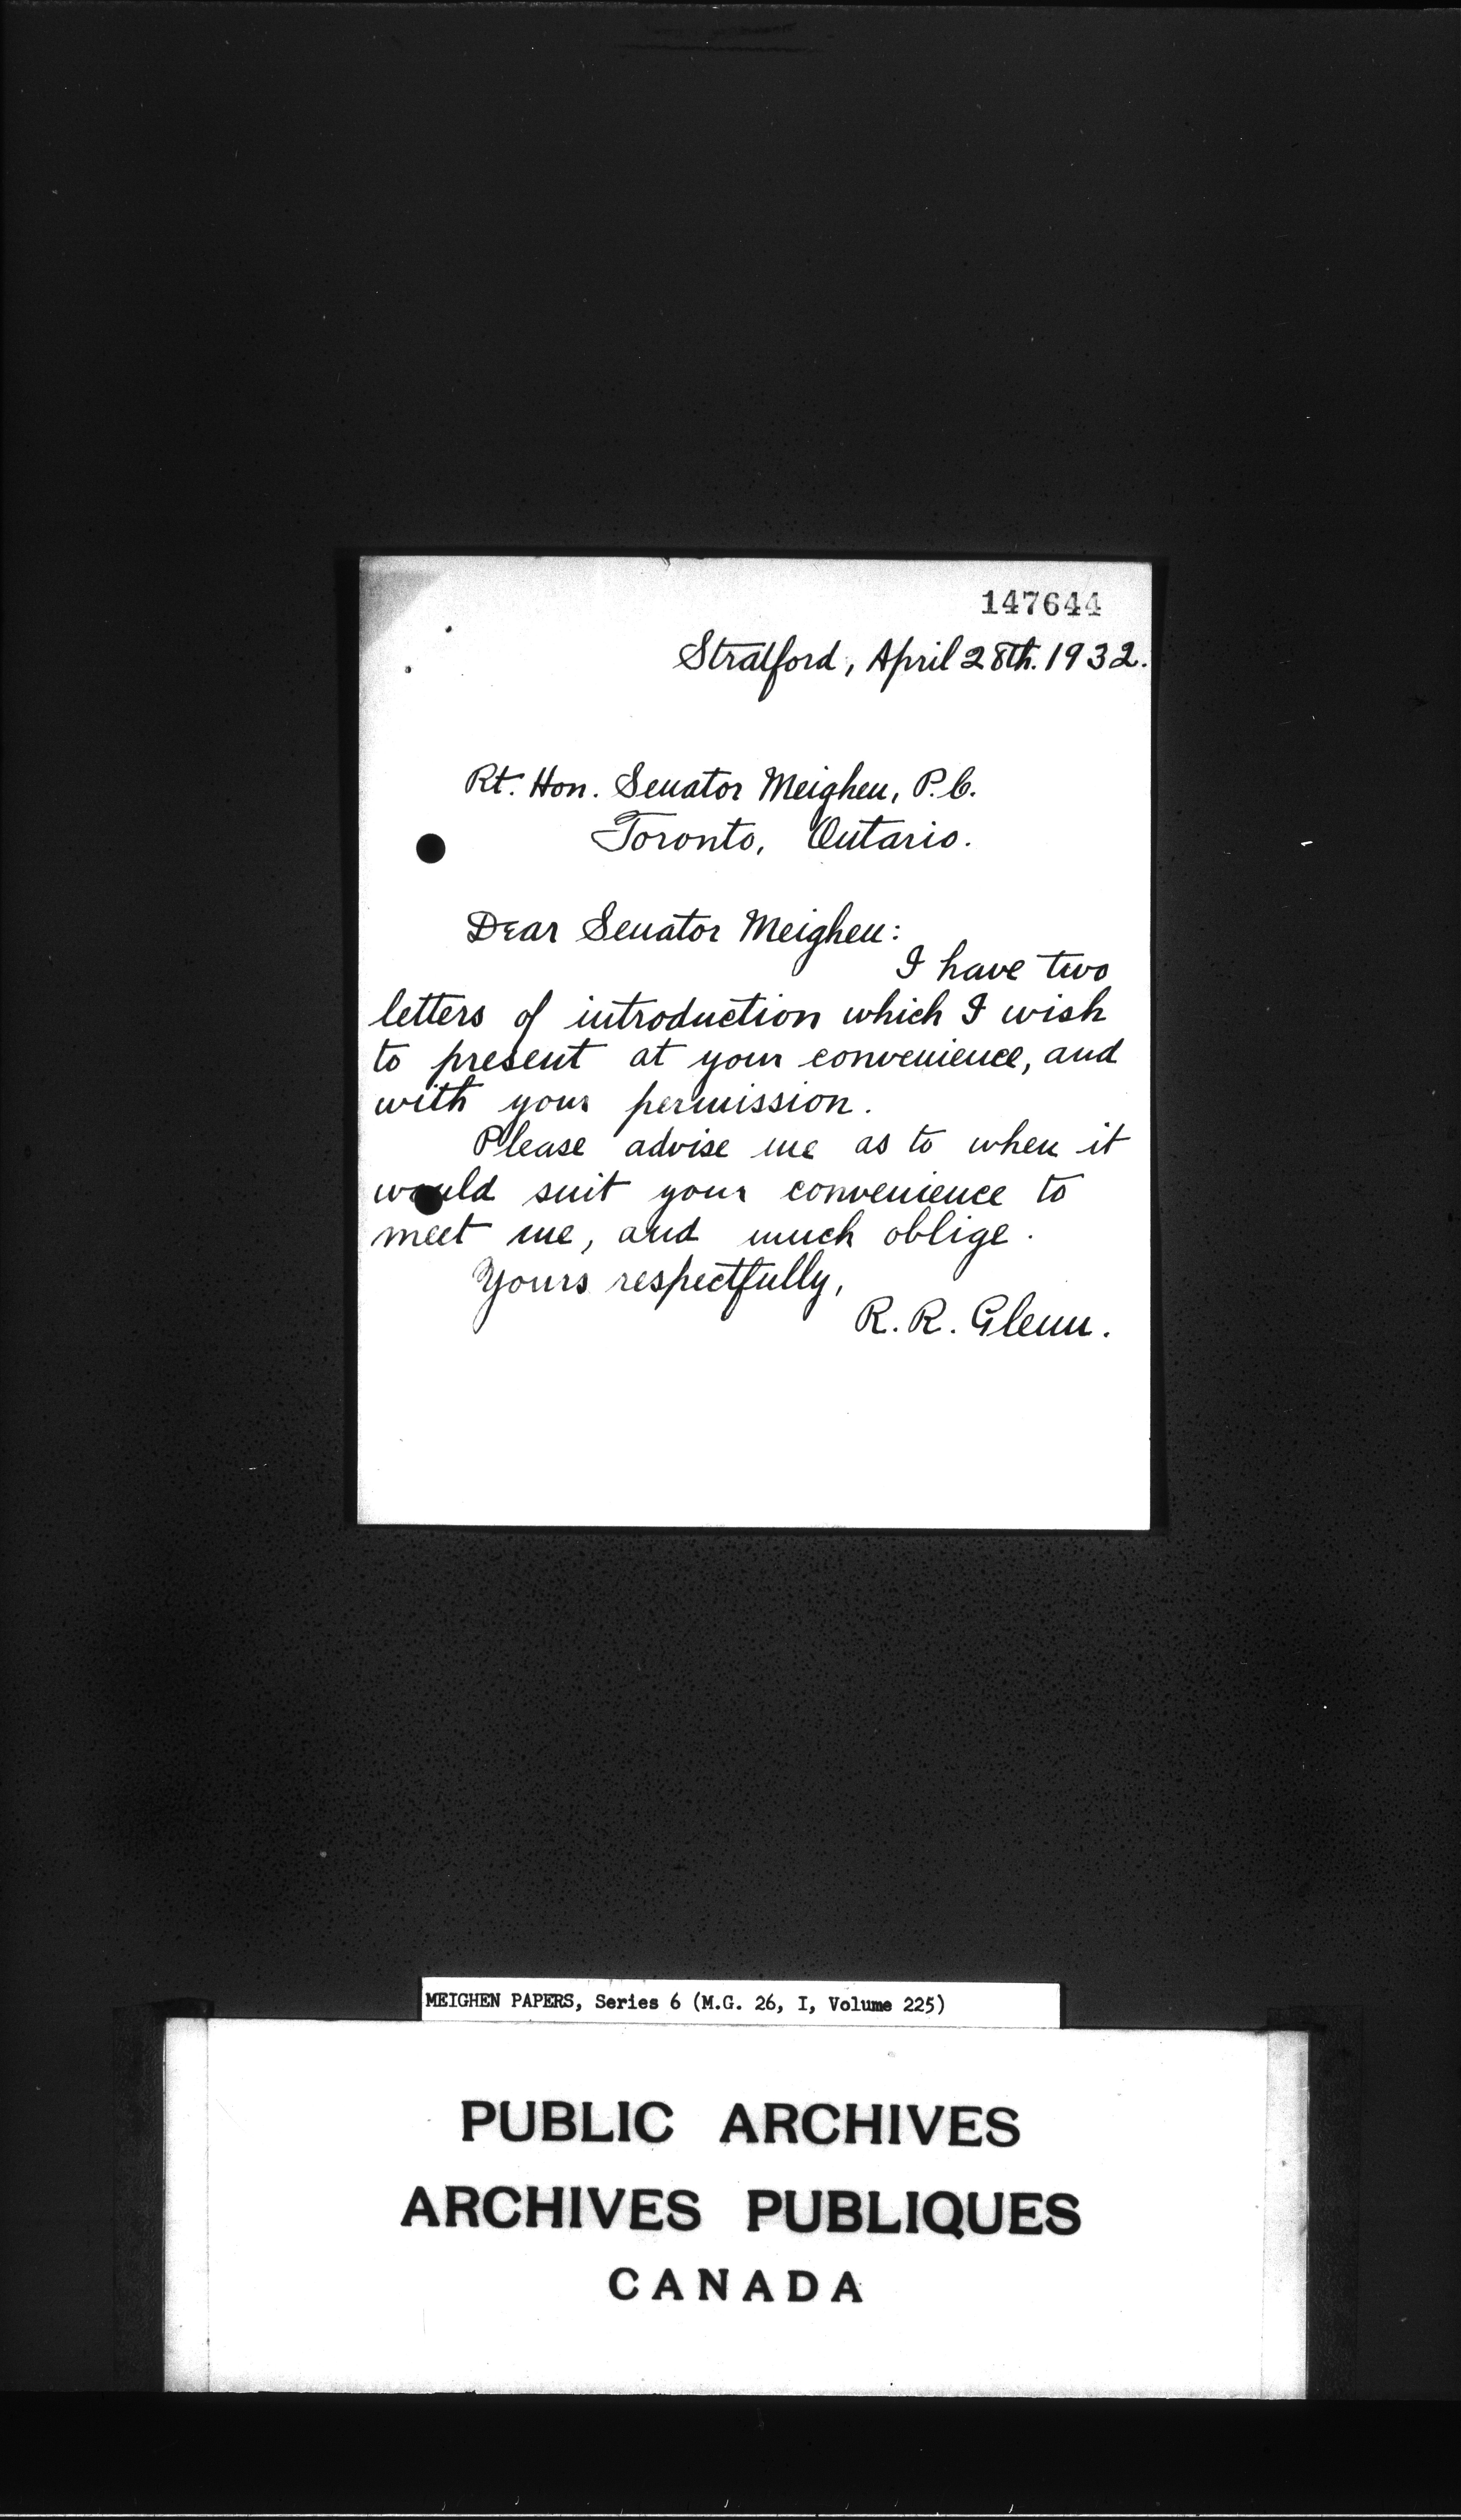 147644
Stratford, April 28th. 1932.
Rt. Hon. Senator Meighen, P.C.
Toronto, Ontario.
Dear Senator Meighen:
I have two
letters of introduction which I wish
to present at your convenience, and
with your permission.
Please advise me as to when it
would suit your convenience to
meet me, and much oblige.
Yours respectfully,
R. R. Glenn.
MEIGHEN PAPERS, Series 6 (M.G. 26, I, Volume 225)
PUBLIC ARCHIVES
ARCHIVES PUBLIQUES
CANADA